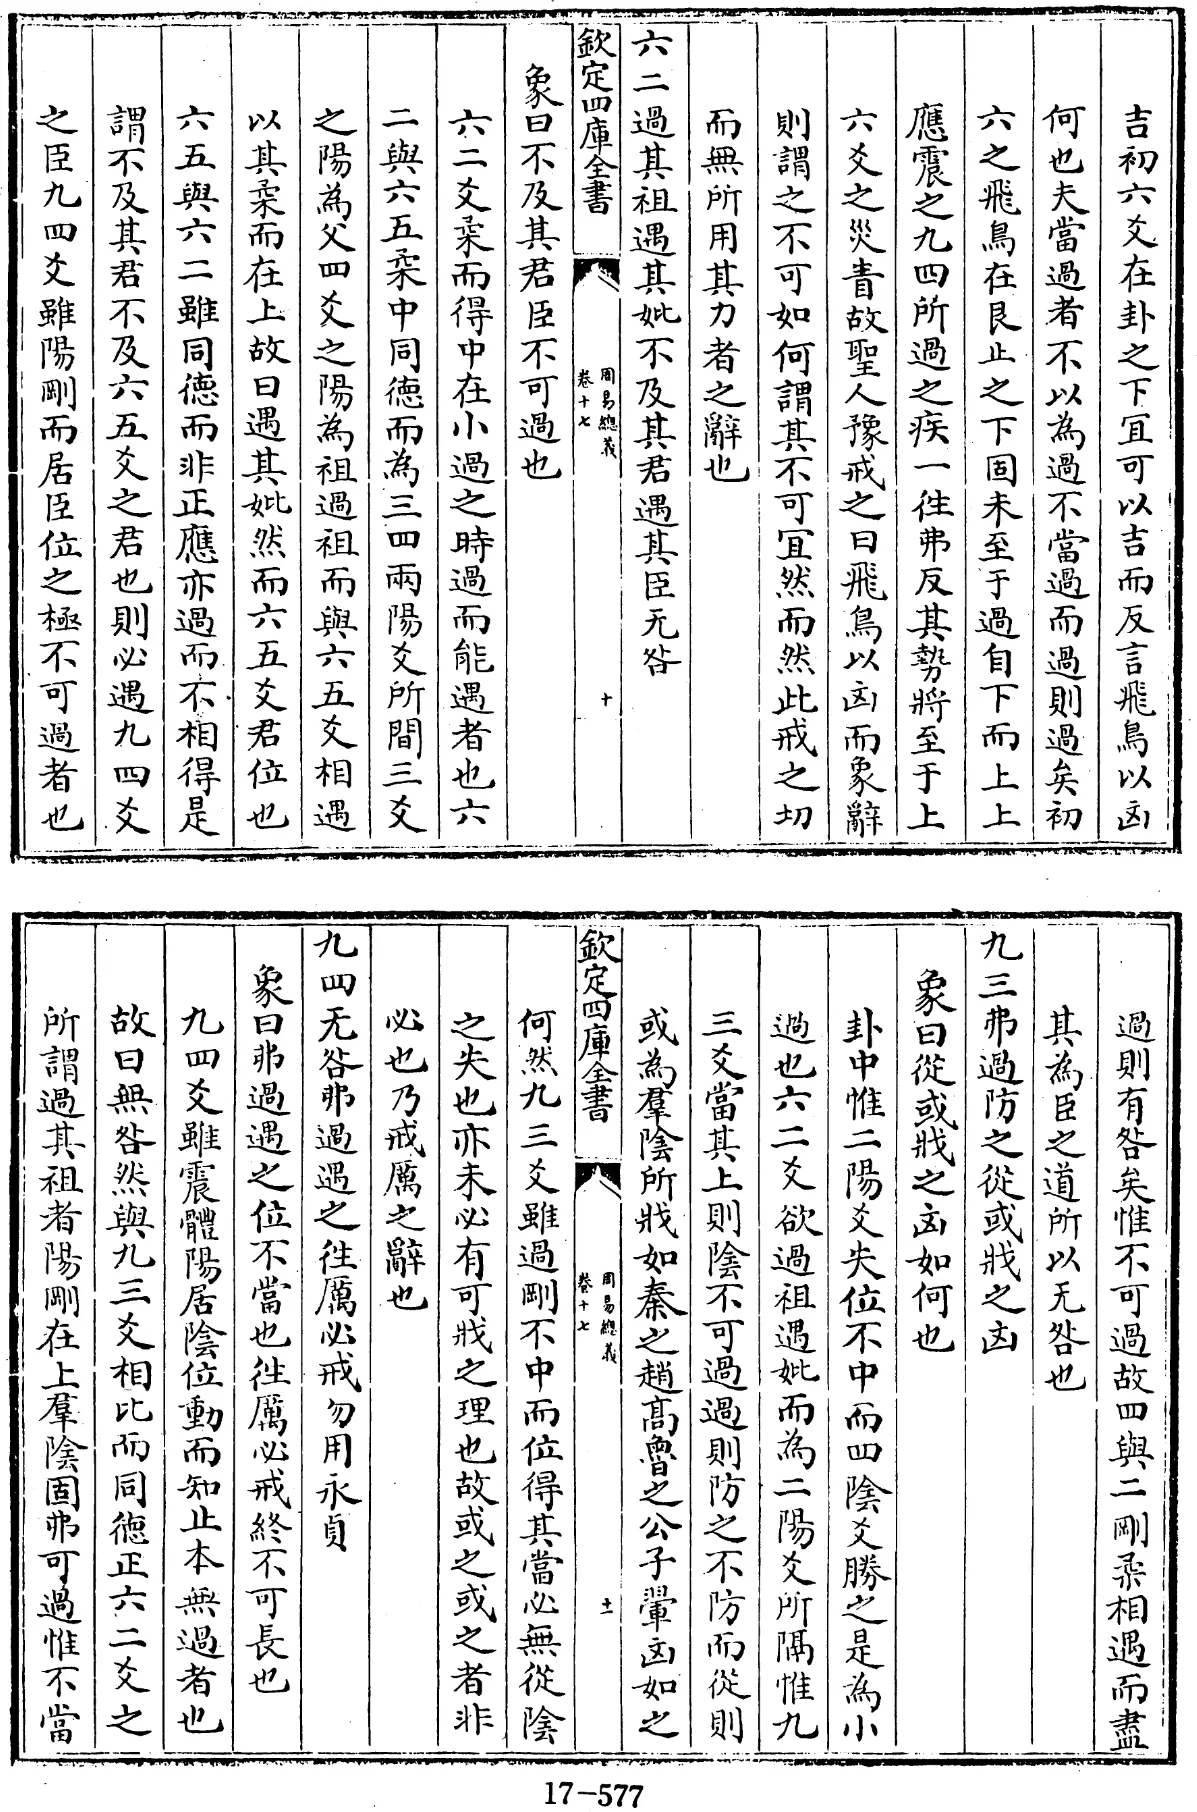 吉初六爻在卦之下宜可以吉而反言飛鳥以凶
何也夫當過者不以為過不當過而過則過矣初
六之飛鳥在艮止之下固未至于過自下而上上
應震之九四所過之疾一往弗反其勢將至于上
六爻之災眚故聖人豫戒之曰飛鳥以凶而象辭
則謂之不可如何謂其不可宜然而然此戒之切
而無所用其力者之辭也
六二過其祖遇其妣不及其君遇其臣无咎
欽定四庫全書
周易總義
卷十七
十
象曰不及其君臣不可過也
六二爻柔而得中在小過之時過而能遇者也六
二與六五柔中同德而為三四兩陽爻所間三爻
之陽為父四爻之陽為祖過祖而與六五爻相遇
以其柔而在上故曰遇其妣然而六五爻君位也
六五與六二雖同德而非正應亦過而不相得是
謂不及其君不及六五爻之君也則必遇九四爻
之臣九四爻雖陽剛而居臣位之極不可過者也
過則有咎矣惟不可過故四與二剛柔相遇而盡
其為臣之道所以无咎也
九三弗過防之從或戕之凶
象曰從或戕之凶如何也
卦中惟二陽爻失位不中而四陰爻勝之是為小
過也六二爻欲過祖遇妣而為二陽爻所隔惟九
三爻當其上則陰不可過過則防之不防而從則
或為羣陰所戕如秦之趙高魯之公子翬凶如之
欽定四庫全書
周易總義
卷十七
十一
何然九三爻雖過剛不中而位得其當必無從陰
之失也亦未必有可戕之理也故或之或之者非
必也乃戒厲之辭也
九四无咎弗過遇之往厲必戒勿用永貞
象曰弗過遇之位不當也往厲必戒終不可長也
九四爻雖震體陽居陰位動而知止本無過者也
故曰無咎然與九三爻相比而同德正六二爻之
所謂過其祖者陽剛在上羣陰固弗可過惟不當
17-577